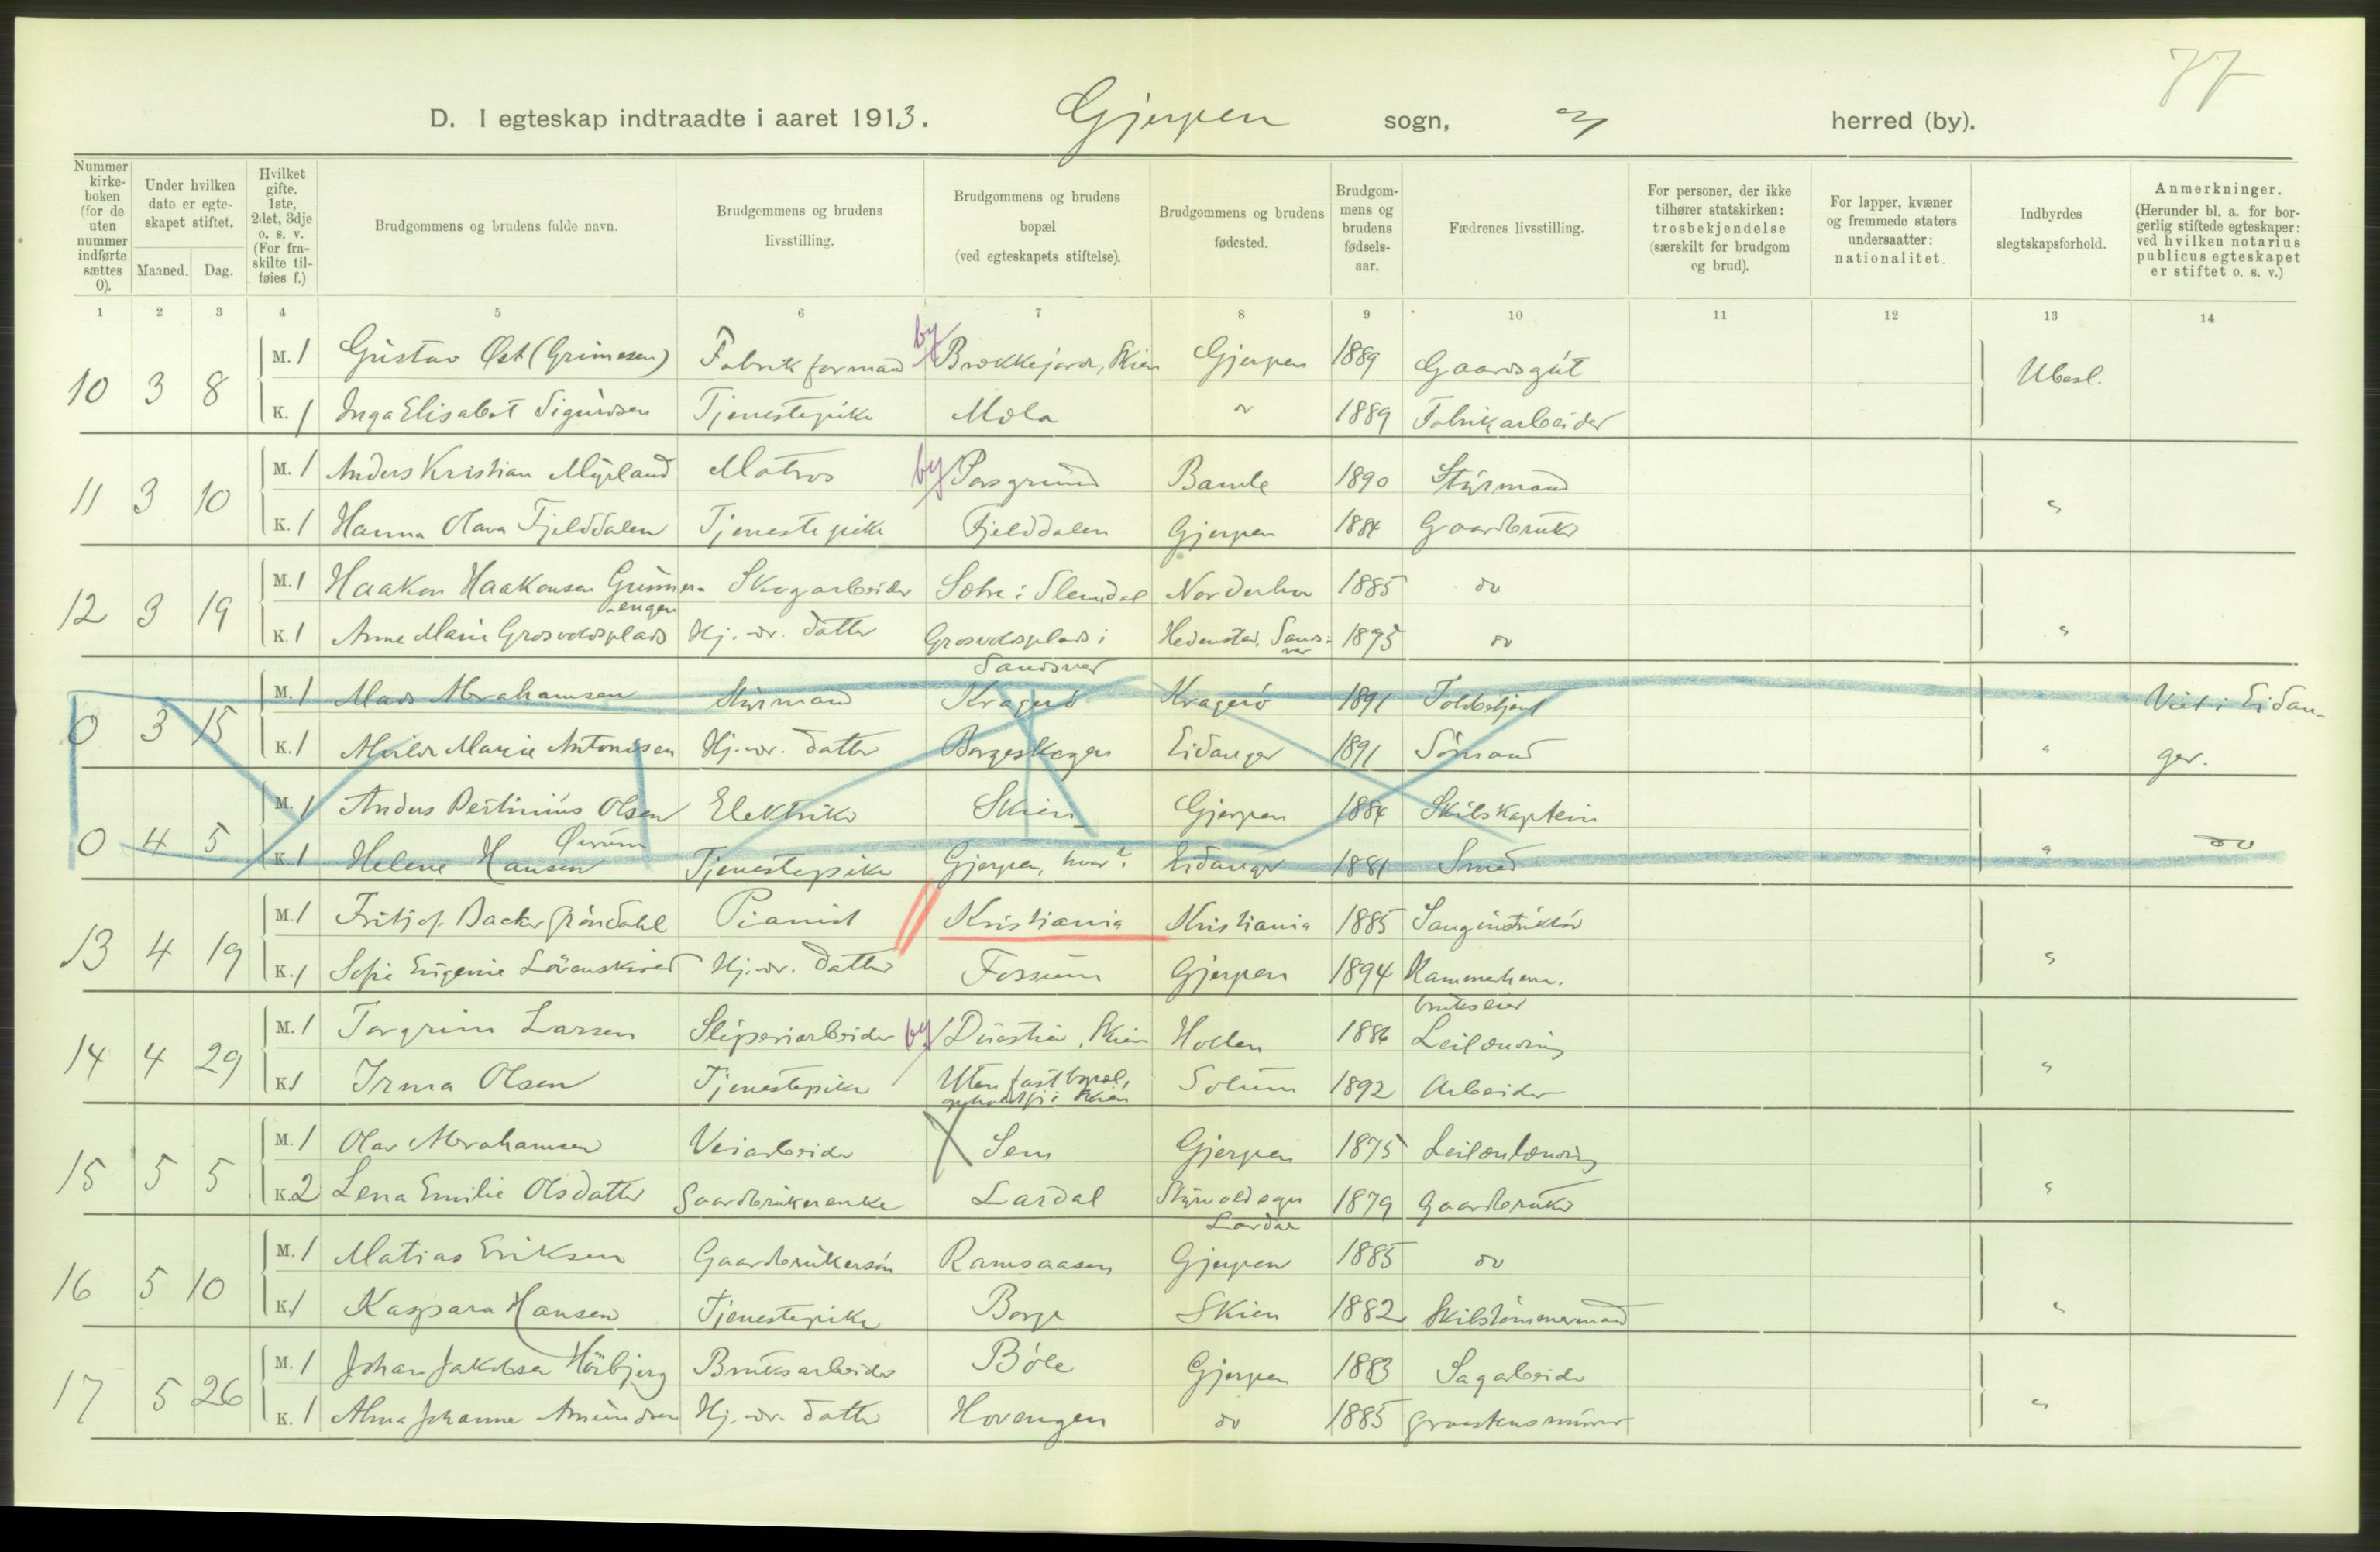 77
D. I egteskap indtraadte i aaret 1913. Gjerpen sogn, herred (by).
Nummer kirke-boken (for de uten nummer indførte sættes 0).
Under hvilken dato er egte-skapet stiftet.
Maaned. Dag.
Hvilket gifte. 1ste, 2det, 3dje o. s. v. (For fra-skilte til-føies f.)
Brudgommens og brudens fulde navn.
Brudgommens og brudens livsstilling.
Brudgommens og brudens bopæl (ved egteskapets stiftelse).
Brudgommens og brudens fødested.
Brudgom-mens og brudens fødsels-aar.
Fædrenes livsstilling.
For personer, der ikke tilhører statskirken: trosbekjendelse (særskilt for brudgom og brud).
For lapper, kvæner og fremmede staters undersaatter: nationalitet.
Indbyrdes slegtskapsforhold.
Anmerkninger. (Herunder bl. a. for bor-gerlig stiftede egteskaper: ved hvilken notarius publicus egteskapet er stiftet o. s. v.)
1 2 3 4 5 6 7 8 9 10 11 12 13 14
10 3 8 M. 1 Gustav (Grimesen) Fabrikformand by Brækkejordet, Skien Gjerpen 1889 Gaardsgut Ubesl.
K. 1 Inga Elisabet Sigurdsen Tjenestepike Mæla do 1889 Fabrikarbeider
11 3 10 M. 1 Anders Kristian Myrland Matros by Porsgrund Bamle 1890 Styrmand "
K. 1 Hanna Olava Fjelddalen Tjenestepike Fjelddalen Gjerpen 1884 Gaardbruker
12 3 19 M. 1 Haakon Haakonsen Skogarbeider Slemdal Norderhov 1885 do "
-engen
K. 1 Anne Marie Grosvoldsplads Hj. vær. datter Grosvoldsplads i Hedenstad, Sands-vær 1895 do
Sandsvær
0 3 15 M. 1 Mads Abrahamsen Styrmand Kragerö Kragerö 1891 Toldbetjent Viet i Eidan-
K. 1 Marie Antonisen Hj. vær. datter Borgeskogen Eidanger 1891 Sömand " ger.
0 4 5 M. 1 Anders Olsen Elektriker Skien Gjerpen 1884 Skibskaptein
K. 1 Helene Hansen Tjenestepike Gjerpen, hvor? Eidanger 1881 Smed " do
13 4 19 M. 1 Fritjof Backer Gröndahl Pianist Kristiania Kristiania 1885 Sanginstruktör "
K. 1 Sofie Eugenie Lövenskiold Hj. vær. datter Fossum Gjerpen 1894 Kammerherre.
brukseier
14 4 29 M. 1 Torgrim Larsen Sliperiarbeider by Duestien, Skien Hollen 1886 Leilænding "
K. 1 Irma Olsen Tjenestepike Uten fast bopæl, Solum 1892 Arbeider
15 5 5 M. 1 Olav Abrahamsen Veiarbeider Sem Gjerpen 1875 "
K. 2 Lena Emilie Olsdatter Gaardbrukerenke Lardal Styrvold sogn 1879 Gaardbruker
Lardal
16 5 10 M. 1 Matias Eriksen Gaardbrukersön Ramsaasen Gjerpen 1885 do "
K. 1 Kaspara Hansen Tjenestepike Borge Skien 1882 Skibstömmermand
17 5 26 M. 1 Johan Jakobsen Bruksarbeider Böle Gjerpen 1883 Sagarbeider "
K. 1 Alma Johanne Amundsen Hj. vær. datter Hovengen do 1885 Graastensmurer